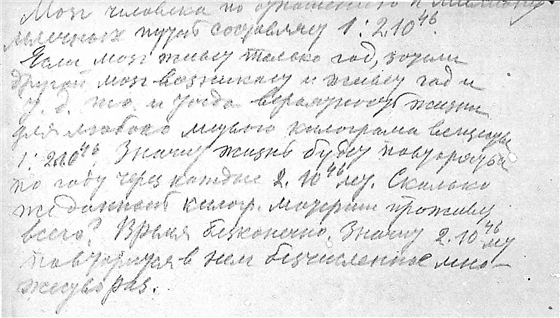 Мозг человека по отношению к миллиону
млечных путей составляет 1 : 2.10^46
Если мозг живет только год, потом
другой мозг возникает и живет год и
т. д. то и тогда вероятность жизни
для любого мертвого килограма вещества
1 : 2.10^46 Значит жизнь будет повторяться
по году через каждые 2.10^46 лет. Сколько
же данный килогр. материи проживет
всего? Время бесконечно. Значит 2.10^46 лет
повторится в нем бесчисленное мно-
жество раз.